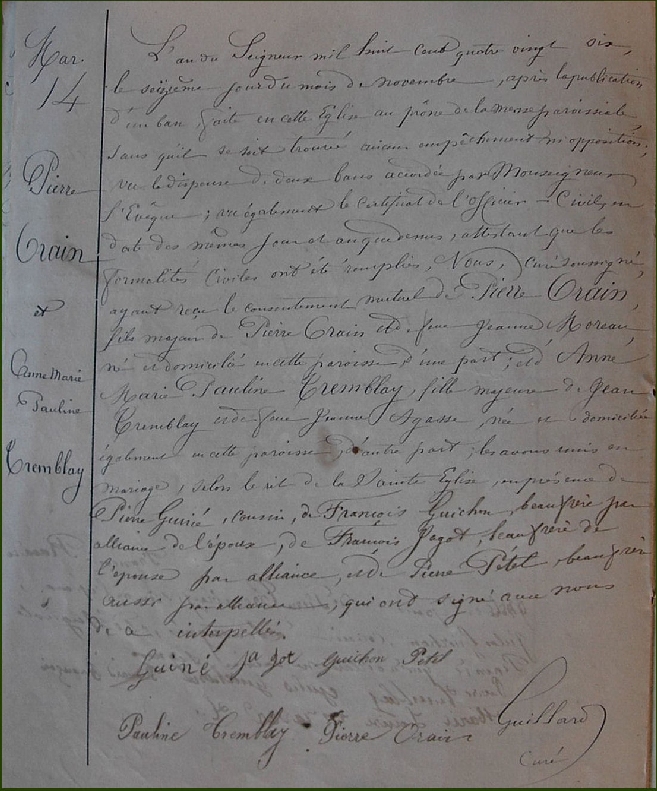 Mar.
14
Pierre
Crain
et
Anne Marie
Pauline
Tremblay
L'an du Seigneur mil huit cent quatre vingt six,
le seizième jour du mois de novembre, après la publication
d'un ban, faite en cette Eglise au prône de la messe paroissiale,
sans qu'il se soit trouvé aucun empêchement ni opposition;
vu le dispense de deux bans accordée par Monseigneur
l'Evêque; vu également le certificat de l'officier Civil, en
date des mêmes jour et an que dessus, attestant que les
formalités civiles ont été remplies, Nous, curé soussigné,
ayant reçu le consentement mutuel de Pierre Crain,
fils majeur de Pierre Crain et de feue Jeanne Moreau,
né et domicilié en cette paroisse d'une part; et d'Anne
Marie Pauline Tremblay, fille majeure de Jean
Tremblay et de feue Jeanne Agasse, née et domiciliée
également en cette paroisse, d'autre part; les avons unis en
mariage, selon le rit de la Sainte Eglise, en présence de
Pierre Guiné, cousin, de François Guichon, beau frère par
alliance de l'époux, de François Jagot, beau frère de
l'épouse par alliance, et de Pierre Pitel, beau frère
aussi par alliance, qui ont signé avec nous
à interpellés.
Guiné Jagot Guichon Pitel
Pauline Tremblay Pierre Crain Guillard
curé